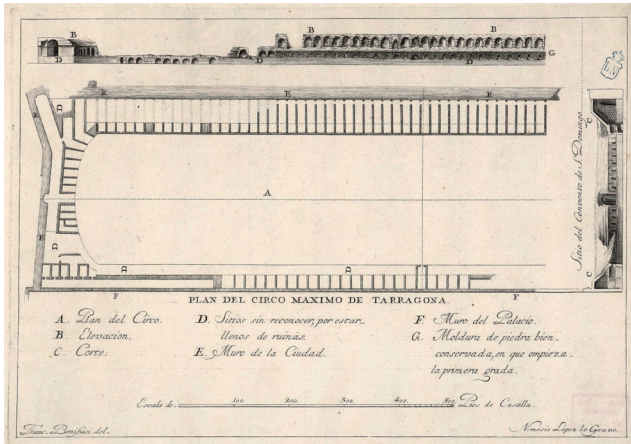 B B B
D D D G
E E E
D
C
A
E
Sitio del Convento de S. Domingo
D D D
C
F F
PLAN DEL CIRCO MAXIMO DE TARRAGONA.
A. Plan del Circo.
B. Elevacion.
C. Corte.
D. Sitios sin reconocer, por estar
llenos de ruinas.
E. Muro de la Ciudad.
F. Muro del Palacio.
G. Moldura de piedra bien
conservada, en que empieza
la primera grada.
Escala de 100. 200. 300. 400. 500. Pies de Castilla.
Franc. Bonifàs del.
Nemesio Lopez lo Gravo.